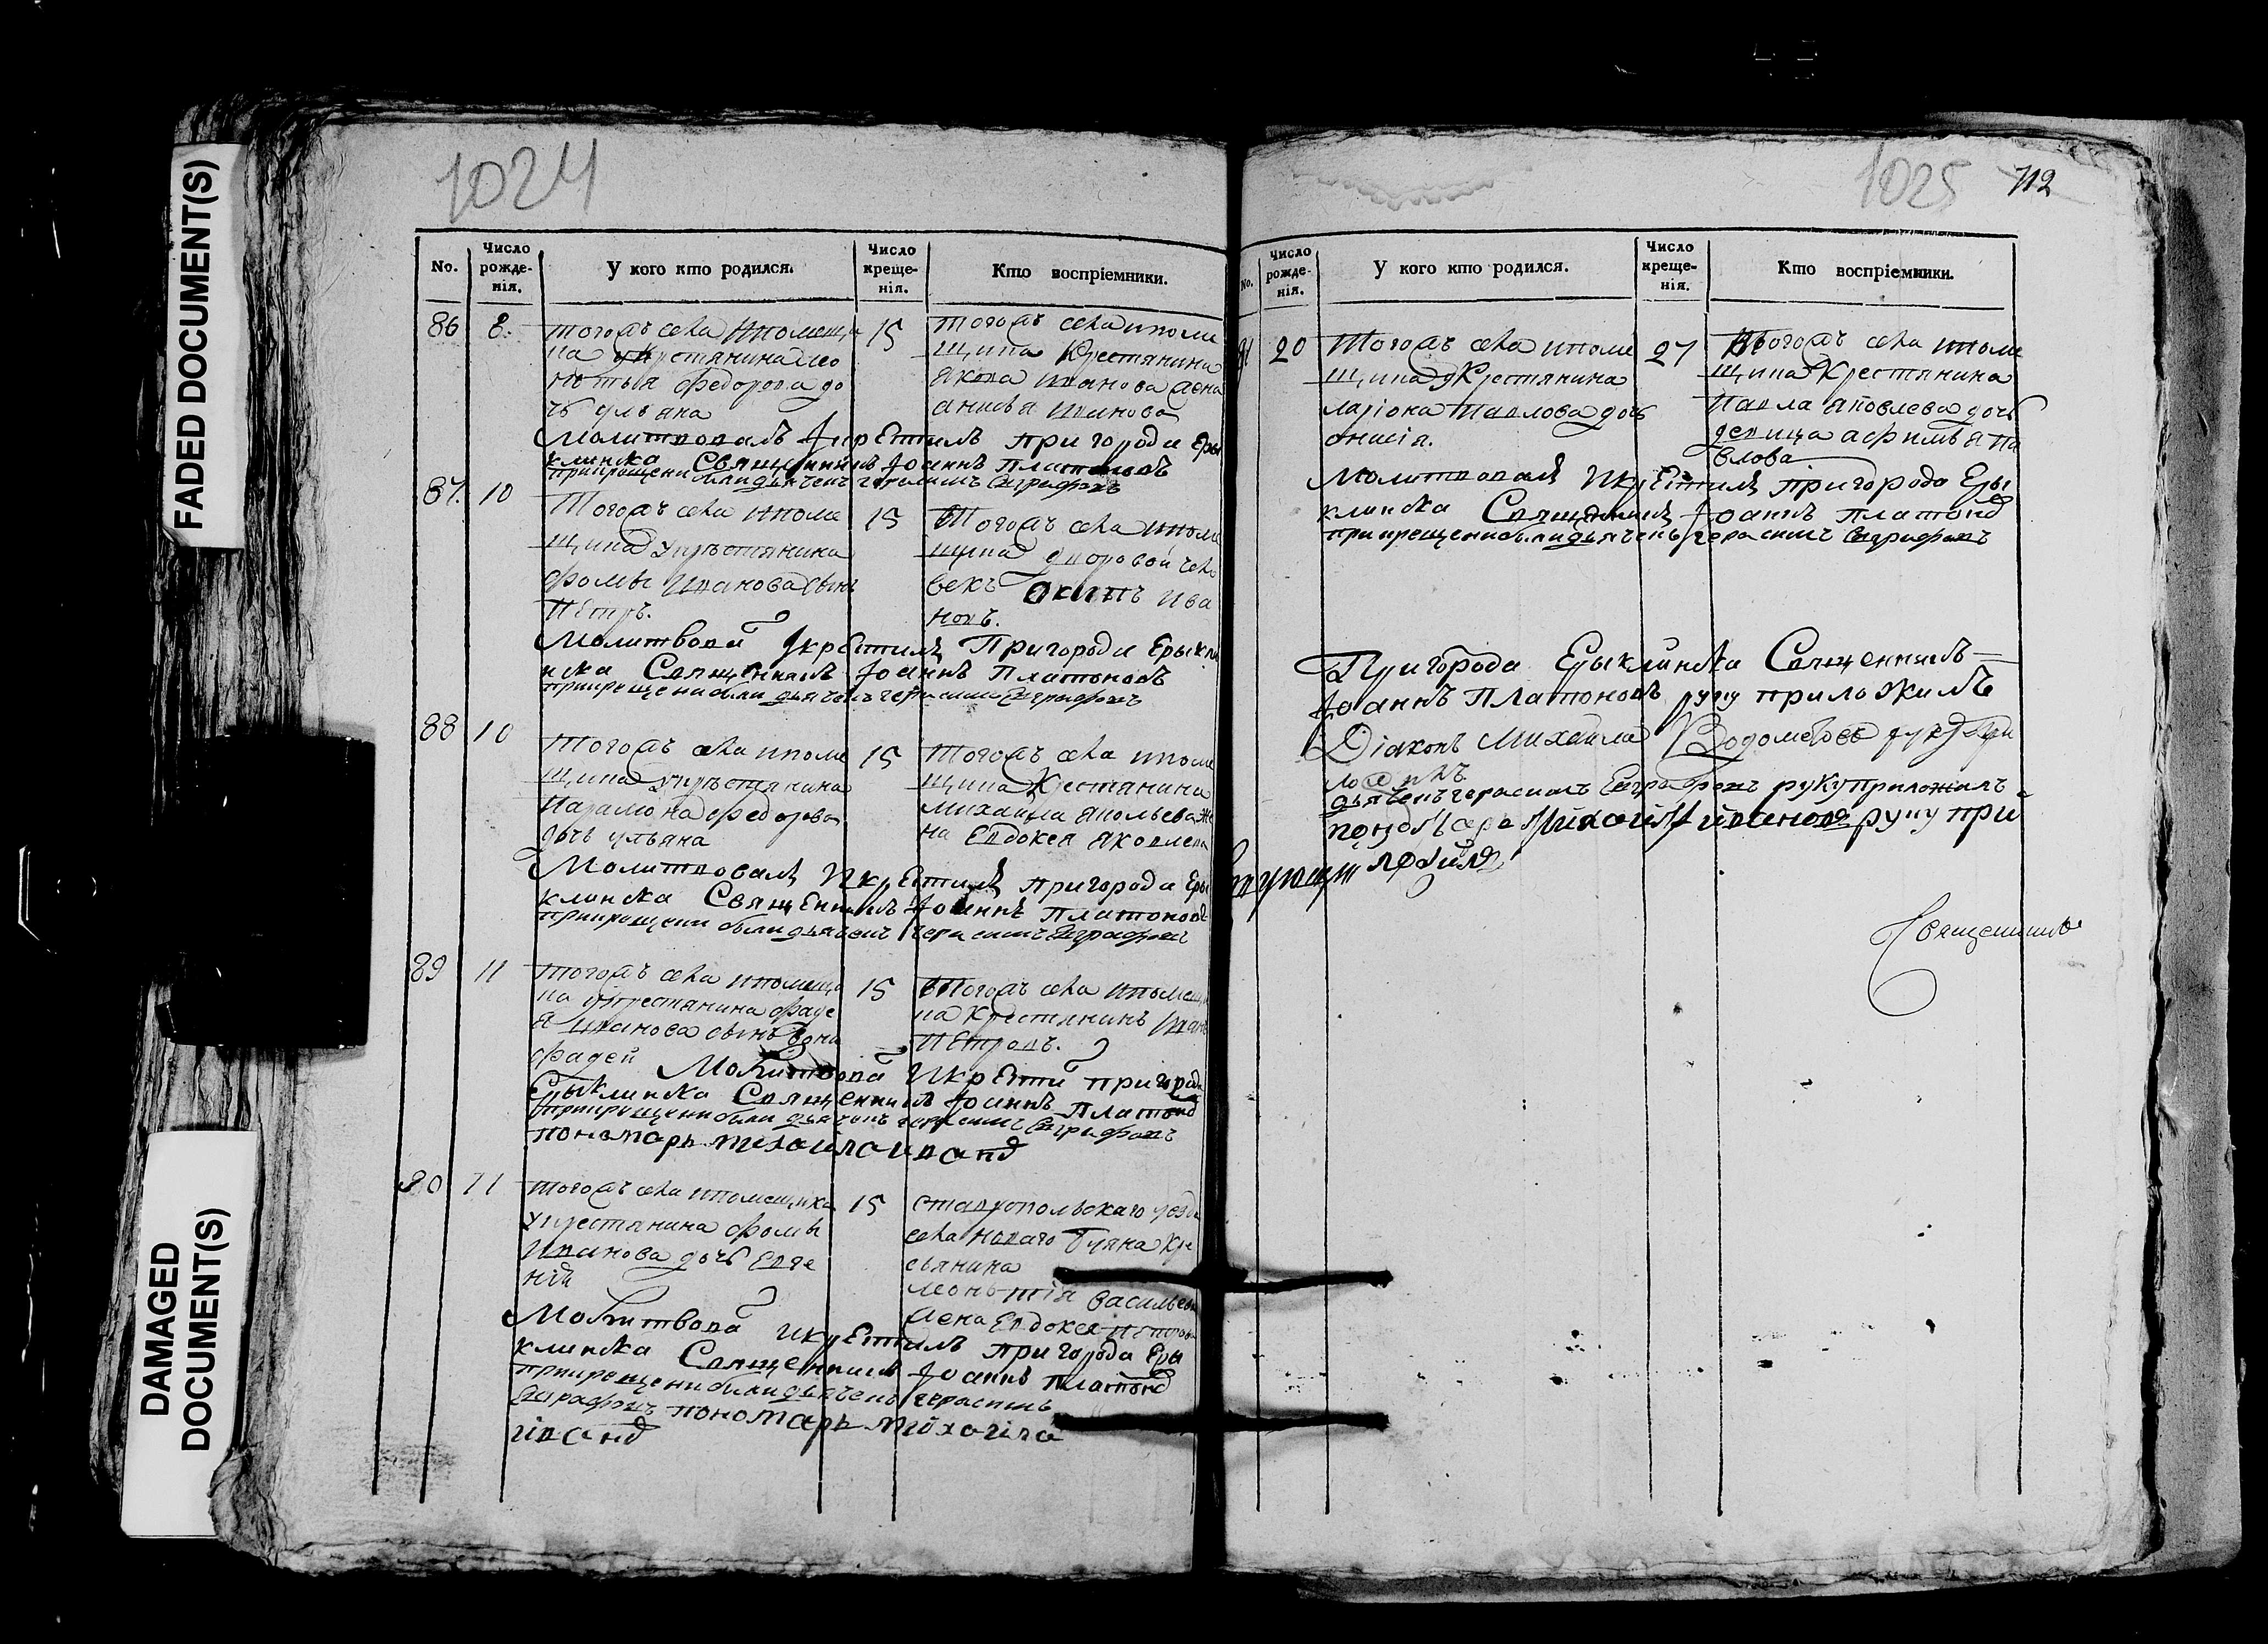 FADED DOCUMENT(S)
DAMAGED
DOCUMENT(S)
1024
No.
Число
рожде-
нія.
У кого кто родился.
Число
креще-
нія.
Кто воспріемники.
86
8.
тогожъ села помещи
ка крестянина
Федорова до
чь ульяна
15
тогожъ села поме
щика крестянина
якова иванова жена
анисья иванова
Молитвовалъ и крЕстилъ пригорода Еры
клинска Священникъ Іоаннъ Платоновъ
при крещени были дьячекъ герасимъ Евграфовъ
87.
10
Тогожъ села поме
щика у крѣстянина
фомы иванова сынъ
пЕтръ.
15
Тогожъ села поме
щика дворовой чело
векъ ива
новъ.
Молитвова и крЕстилъ Пригорода Ерыкли
нска СвящЕнникъ Іоаннъ Платоновъ
при крещени были дьячекъ герасимъ Евграфовъ
88
10
Тогожъ села поме
щика у крѣстянина
парамона федорова
дочь ульяна
15
Тогожъ села поме
щика Крестянина
михайла же
на Евдокея яковлева
Молитвовалъ и крЕстилъ пригорода Еры
клинска СвящЕнникъ Іоаннъ Платоновъ
при крещени были дьячекъ герасимъ Евграфовъ
89
11
тогожъ села помещи
ка у крестянина фаде
я иванова сынъ
фадей
15
Тогожъ села помещи
ка Крестянинъ иванъ
пЕтровъ.
Молитвова и крЕсти пригорода
Ерыклинска Священникъ Іоаннъ Платоновъ
при крещени были дьячекъ герасимъ Евграфовъ
пономарь михайла ивановъ
90
11
тогожъ села помещика
у крестянина фомы
иванова дочь Евге
нія
15
ставропольскаго уезда
села новаго кре
сьянина
леонътія васильева
жена Евдокея петрова
Молитвова и крЕстилъ пригорода Еры
клинска Священникъ Іоаннъ Платоновъ
при крещени были дьячекъ герасимъ
Евграфовъ пономарь михайла
ивановъ
1025
712
No.
Число
рожде-
нія.
У кого кто родился.
Число
креще-
нія.
Кто воспріемники.
91
20
Тогожъ села поме
щика у Крестянина
ларіона павлова дочь
анисія.
27
Тогожъ села поме
щика Крестянина
павла яковлева дочь
девица афимья па
влова
Молитвовалъ и крЕстилъ пригорода Еры
клинска Священникъ Іоаннъ Платоновъ
при крещени были дьячекъ герасимъ Евграфовъ
Пригорода Ерыклинска Священникъ
Іоаннъ Платоновъ руку приложилъ
Діаконъ Михаила руку при
ложилъ
дьячекъ герасимъ Евграфовъ руку приложилъ
пономарь Михайла ивановъ руку при
ложилъ
Священникъ